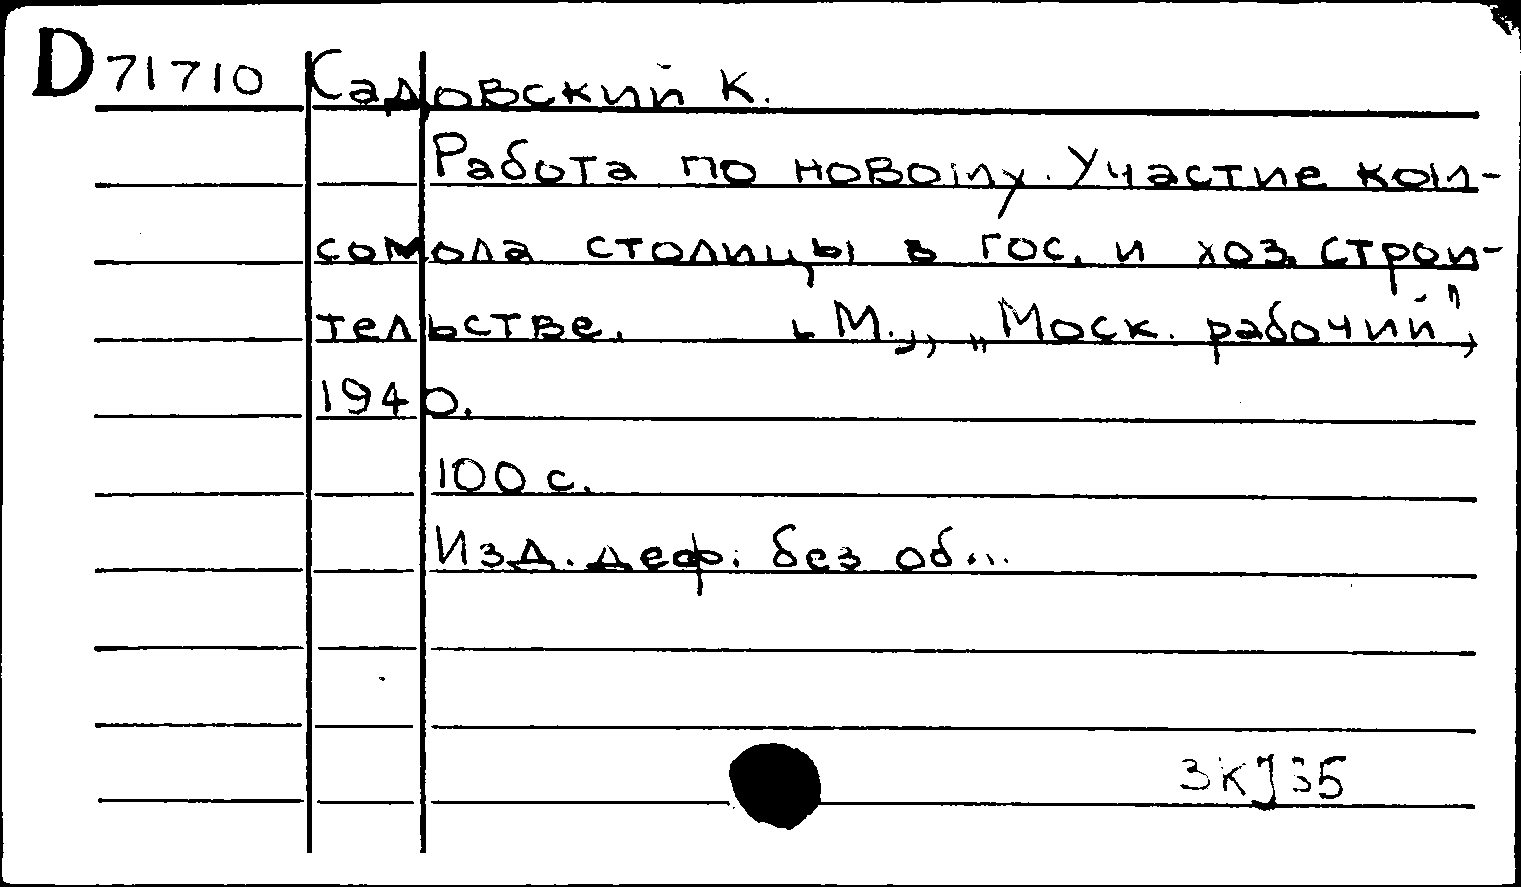 D 71710 Садовский К.
Работа по новому. Участие ком-
сомола столицы в гос. и хоз. строи-
тельстве. М., „Моск. рабочий",
1940.
100 с.
Изд. деф. без об...